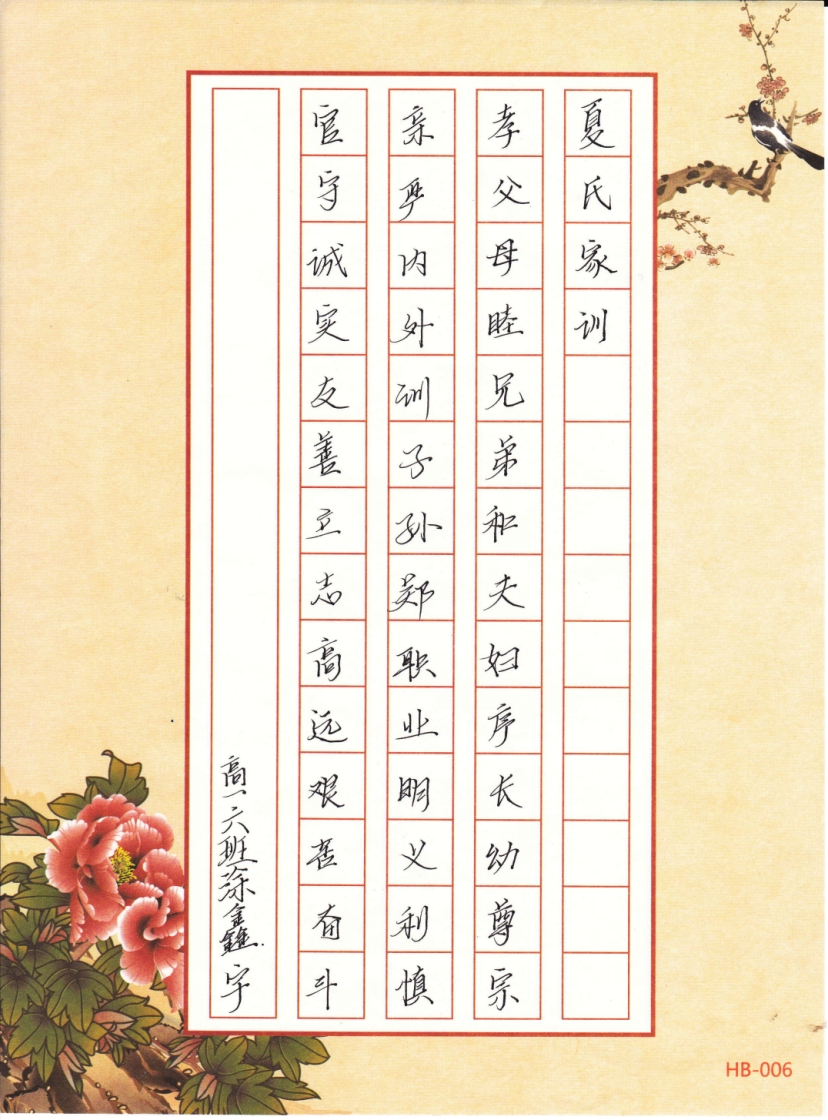 夏氏家训
孝父母睦兄弟和夫妇序长幼尊宗
亲严内外训子孙郑职业明义利慎
官守诚实友善立志高远艰苦奋斗
高一六班涂金鑫字
HB-006